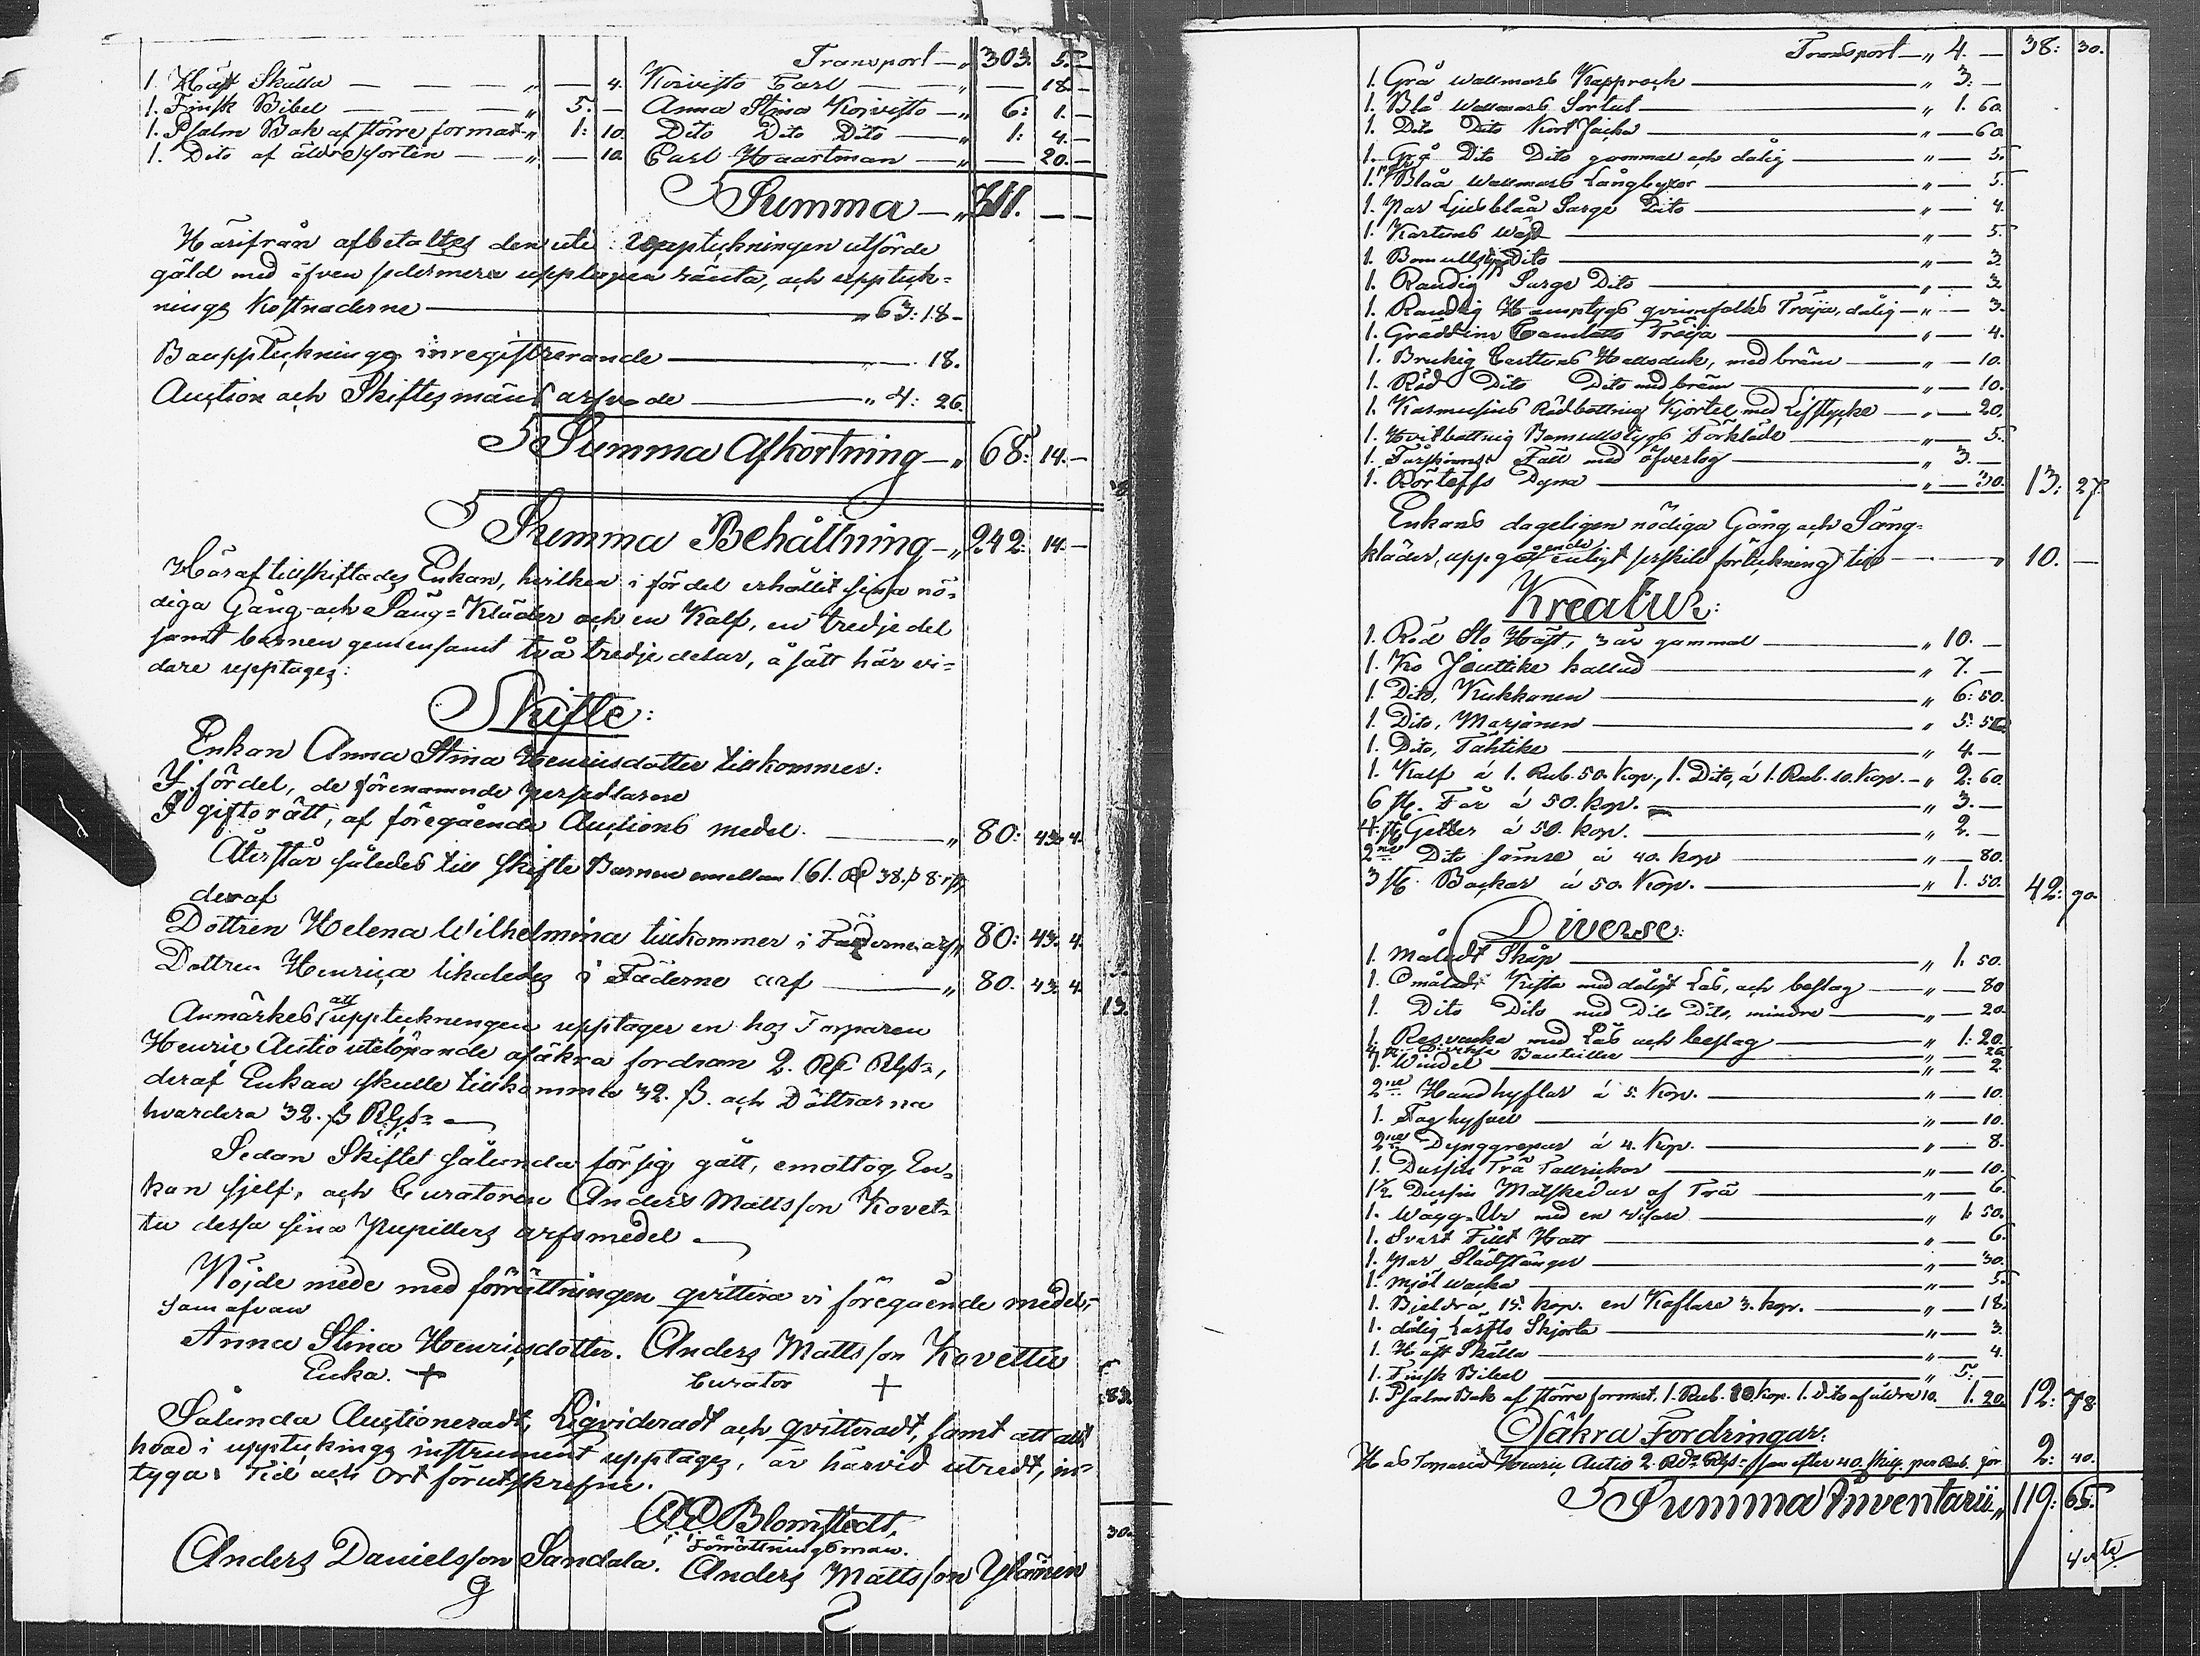 Transport — „ 303. 5. —
1. Häst Skälla — — — „ — 4. Koivisto Carl — — „ — 18. —
1. Finsk Bibel — — — „ 5. — Anna Stina Koivisto — „ 6: 1. —
1. Psalm Bok af större format „ 1: 10. Dito Dito Dito — „ 1: 4. —
1. Dito af äldre sorten — — „ — 10. Carl Haartman — „ — 20. —
Summa — „ 311. — —
Härifrån afbetaltes den uti upptekningen utförde
gäld med äfven sedermera upplupen ränta, och upptek-
nings kostnaderne — „ 63: 18 —
Bouppteknings inregistrerande — „ — 18.
Auction och Skiftesmäns arfvode — „ 4: 26.
Summa Afkortning — „ 68: 14. —
Summa Behållning — „ 242: 14. —
Häraf tillskiftades Enkan, hvilken i fördel erhållit sina nö-
diga Gång- och Säng-Kläder och en Kalf, en tredjedel
samt barnen gemensamt två tredjedelar, å sätt här vi-
dare upptages:
Skifte:
Enkan Anna Stina Henricsdotter tillkommer:
I fördel, de förenämnde persedlarne
I giftorätt, af föregående Auctions medel. — „ 80: 43. 4.
Återstår således till skifte Barnen emellan 161. Rd 38. ß 8. rst
deraf
Dottren Helena Wilhelmina tillkommer i Fäderne arf „ 80: 43. 4.
Dottren Henrica likaledes i Fäderne arf — „ 80. 43. 4.
Anmärkes att upptekningen upptager en hos Torparen
Henric Autio utelöpande osäkra fordran 2. Rd Rgs,
deraf Enkan skulle tillkomma 32. ß. och Döttrarna
hvardera 32. ß Rgs. —
Sedan Skiftet sålunda för sig gått, emottog En-
kan sjelf, och Curatoren Anders Mattsson Kovet-
tu dessa sina Pupillers arfsmedel. —
Nöjde mede med förrättningen qvittera vi föregående medel,
Som ofvan
Anna Stina Henricsdotter. Anders Mattsson Kovettu
Enka. + Curator +
Sålunda Auctioneradt, Liqvideradt och qvitteradt, samt att allt
hvad i uppteknings instrument upptages, är härvid utredt, in-
tyga: Tid och Ort förutskrefne.
Blomstedt,
Förrättningsman.
Anders Danielsson Sandala. Anders Mattsson Ylänen
Transport — „ 4. — 38: 30.
1. Grå Wallmars Kapprock — „ 3. —
1. Blå Wallmars Sortut — „ 1. 60.
1. Dito Dito Kort Jacka — „ — 60.
1. Grå Dito Dito gammal och dålig — „ — 5.
1. Pr Blåå Wallmars Långbyxor — „ — 5.
1. Par Ljusblåå Sarge Dito — „ — 4.
1. Kartuns Wäst — „ — 5.
1. Bomullstyg Dito — „ — 3.
1. Randig Sarge Dito — „ — 3.
1. Randig Hamptygs qvinnfolks Tröija, dålig — „ — 3.
1. Grädelins Camlotts Tröija — „ — 4.
1. Brukig Carttuns Halsduk, med bräm — „ — 10.
1. Röd Dito Dito med bräm — „ — 10.
1. Kasmusins Rödbottnig Kjortel med Lifstycke — „ — 20.
1. Hvitbottnig Bomullstygs Förkläde — „ — 5.
1. Fårskinns Fäll med öfvertog — „ 3. —
1. Rörtöffs Dyna — „ — 30. 13: 27.
Enkans dageligen nödiga Gång och Säng-
kläder, uppgående enligt serskild förtekning till — „ 10. —
Kreatur:
1. Röd Sto Häst, 3 år gammal — „ 10. —
1. Ko Jouttike kallad — „ 7. —
1. Dito, Kukkonen — „ 6: 50.
1. Dito, Marjonen — „ 5: 50.
1. Dito, Tähtike — „ 4. —
1. Kalf á 1. Rub. 50. Kop., 1. Dito, á 1. Rub. 10. Kop. — „ 2: 60.
6 st. Får á 50. kop. — „ 3. —
4. st Getter á 50. kop. — „ 2. —
2ne Dito sämre á 40. kop — „ — 80.
3 st. Bockar á 50. Kop. — „ 1. 50. 42: 90.
Diverse:
1. Måladt Skåp — „ 1. 50.
1. Omålad Kista med dåligt Lås, och beslag — „ — 80
1. Dito Dito med Dito Dito, mindre — „ — 20.
1. Resvacka med Lås och beslag — „ 1: 20.
Bouteiller — „ — 26.
1. Windel — „ — 2.
2ne Handhyflar á 5. Kop. — „ — 10.
1. Foghyfvel — „ — 10.
2ne Dynggrepar á 4. Kop. — „ — 8.
1. Dussin Trä Tallrickar — „ — 10.
1½ Dussin Matskedar af Trä — „ — 6.
1. Wägg-Ur med en visare — „ 1. 50.
1. Svart Filt Hatt — „ — 6.
1. Par Slädstänger — „ — 30.
1. Mjöl Wacka — „ — 5.
1. Bjeldra, 15. kop. en Kaflare 3. kop. — „ — 18.
1. dålig Lärfts Skjorta — „ — 3.
1. Häst Skälla — „ — 4.
1. Finsk Bibel — „ 5. —
1. Psalm Bok af större format, 1. Rub. 10. kop. 1. dito af äldre 10. 1. 20. 12: 78.
Osäkra Fordringar:
Hos Torparen Henric Autio 2. Rd Rgs, som efter 40. skilg. per Rub. gör 2: 40.
Summa Inventarii „ 119: 65.